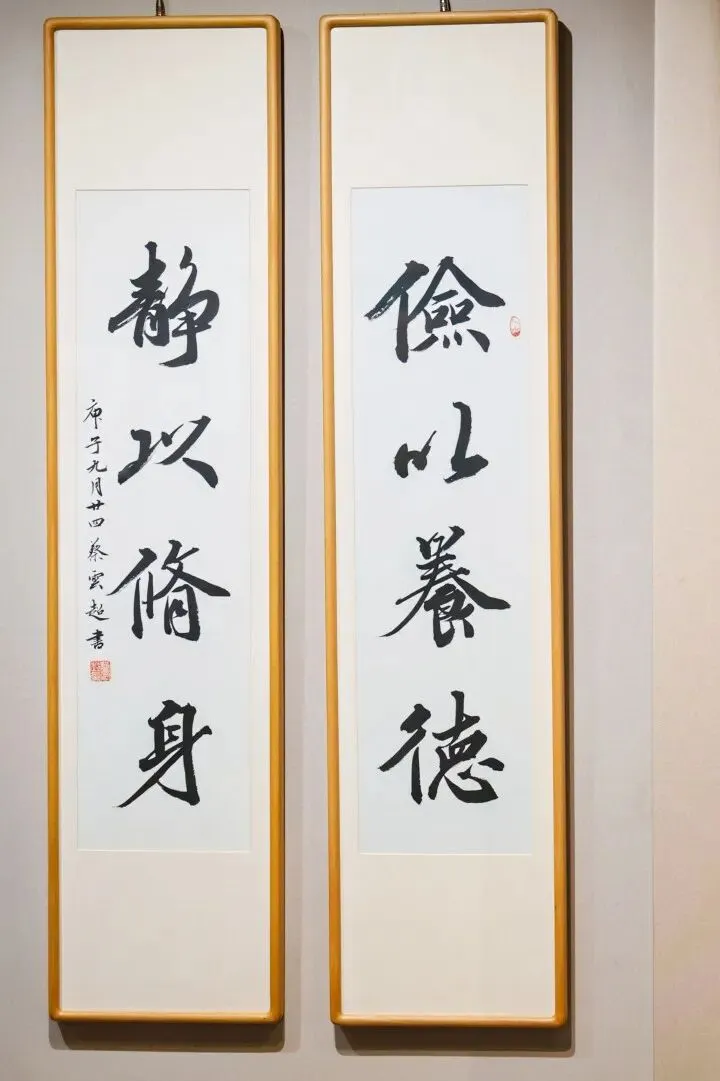 儉以養德
静以脩身
庚子九月廿四蔡雲超書